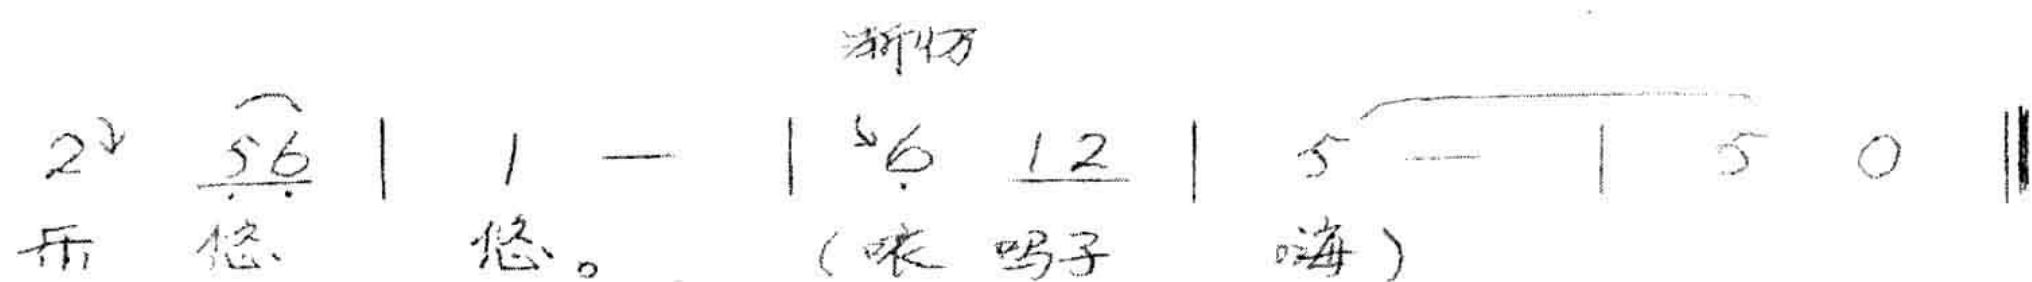 渐慢
2 56 | 1 — | 6 12 | 5 — | 5 0 ‖
乐 悠 悠。 (咴 吗子 嗨)